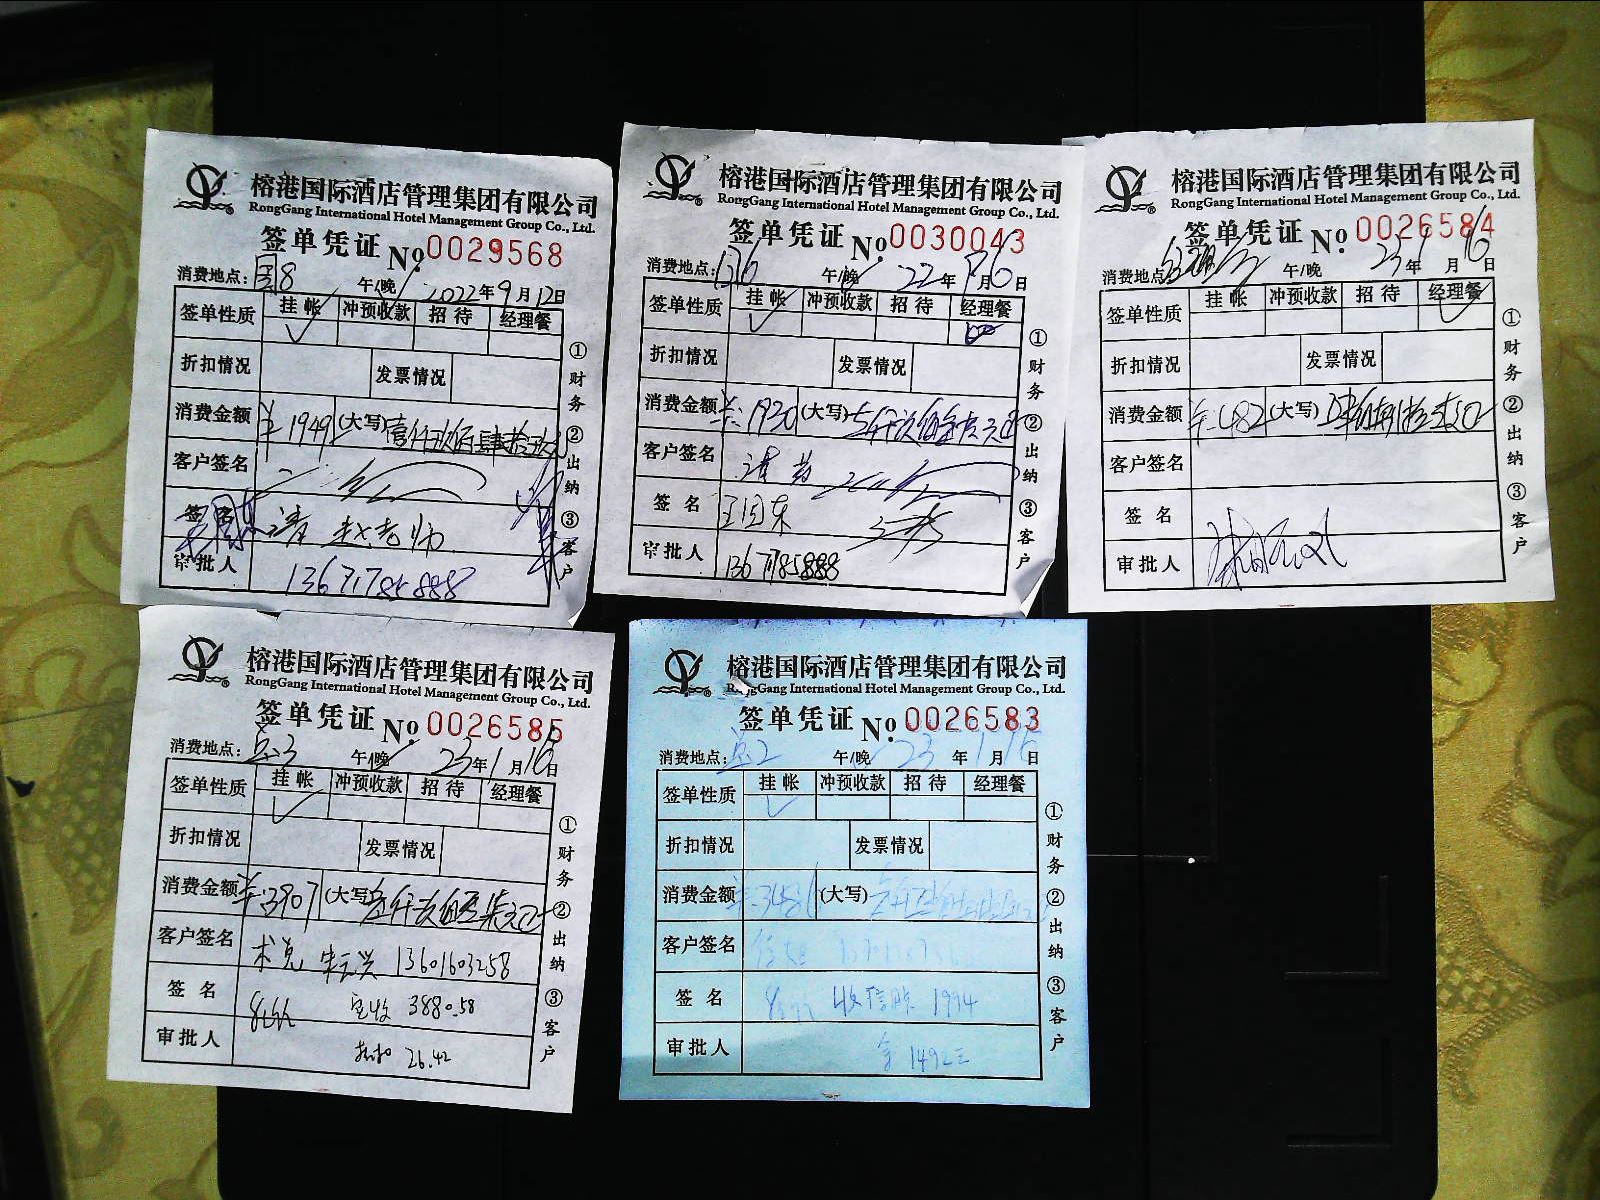 榕港国际酒店管理集团有限公司
RongGang International Hotel Management Group Co., Ltd.
签单凭证 No. 0029568
消费地点: 8 午/晚 2022年9月12日
签单性质 挂帐 冲预收款 招待 经理餐
折扣情况 发票情况
消费金额 ¥1949 (大写) 壹仟玖佰肆拾玖
客户签名
签名 请赵老师
审批人 13671785888
①财务 ②出纳 ③客户
榕港国际酒店管理集团有限公司
RongGang International Hotel Management Group Co., Ltd.
签单凭证 No. 0030043
消费地点: 午/晚 22年 月 日
签单性质 挂帐 冲预收款 招待 经理餐
折扣情况 发票情况
消费金额 (大写)
客户签名
签名 王国东
审批人 13671785888
①财务 ②出纳 ③客户
榕港国际酒店管理集团有限公司
RongGang International Hotel Management Group Co., Ltd.
签单凭证 No. 0026584
消费地点: 午/晚 23年1月16日
签单性质 挂帐 冲预收款 招待 经理餐
折扣情况 发票情况
消费金额 ¥:482 (大写)
客户签名
签名
审批人
①财务 ②出纳 ③客户
榕港国际酒店管理集团有限公司
RongGang International Hotel Management Group Co., Ltd.
签单凭证 No. 0026585
消费地点: 3 午/晚 23年1月16日
签单性质 挂帐 冲预收款 招待 经理餐
折扣情况 发票情况
消费金额 ¥:3907 (大写)
客户签名 13601603258
签名 实收 3880.58
审批人 26.42
①财务 ②出纳 ③客户
榕港国际酒店管理集团有限公司
RongGang International Hotel Management Group Co., Ltd.
签单凭证 No. 0026583
消费地点: 2 午/晚 23年1月16日
签单性质 挂帐 冲预收款 招待 经理餐
折扣情况 发票情况
消费金额 ¥:3486 (大写)
客户签名
签名 1994
审批人 1492
①财务 ②出纳 ③客户